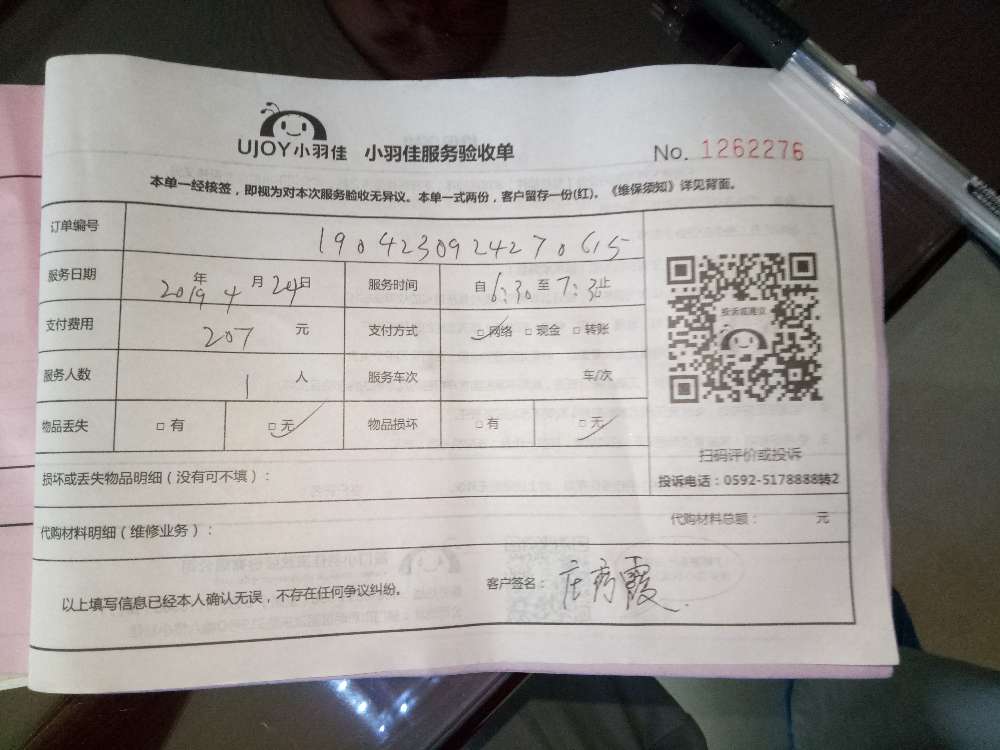 UJOY小羽佳 小羽佳服务验收单 No. 1262276
本单一经核签，即视为对本次服务验收无异议。本单一式两份，客户留存一份(红)。《维保须知》详见背面。
订单编号 1904230924270615
服务日期 2019年4月24日 服务时间 自6:30至7:30止
支付费用 207元 支付方式 □网络 □现金 □转账
投诉或建议
服务人数 1人 服务车次 车/次
物品丢失 □有 □无 物品损坏 □有 □无
扫码评价或投诉
损坏或丢失物品明细（没有可不填）：
投诉电话：0592-5178888转2
代购材料明细（维修业务）：
代购材料总额： 元
以上填写信息已经本人确认无误，不存在任何争议纠纷。
客户签名：庄 霞